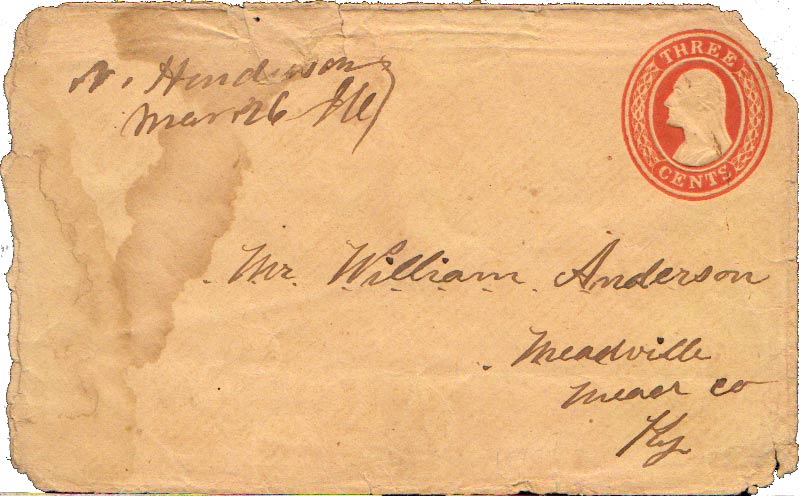 N. Henderson
Mar 26
THREE
CENTS
Mr. William Anderson
Meadville
Mead co
Ky